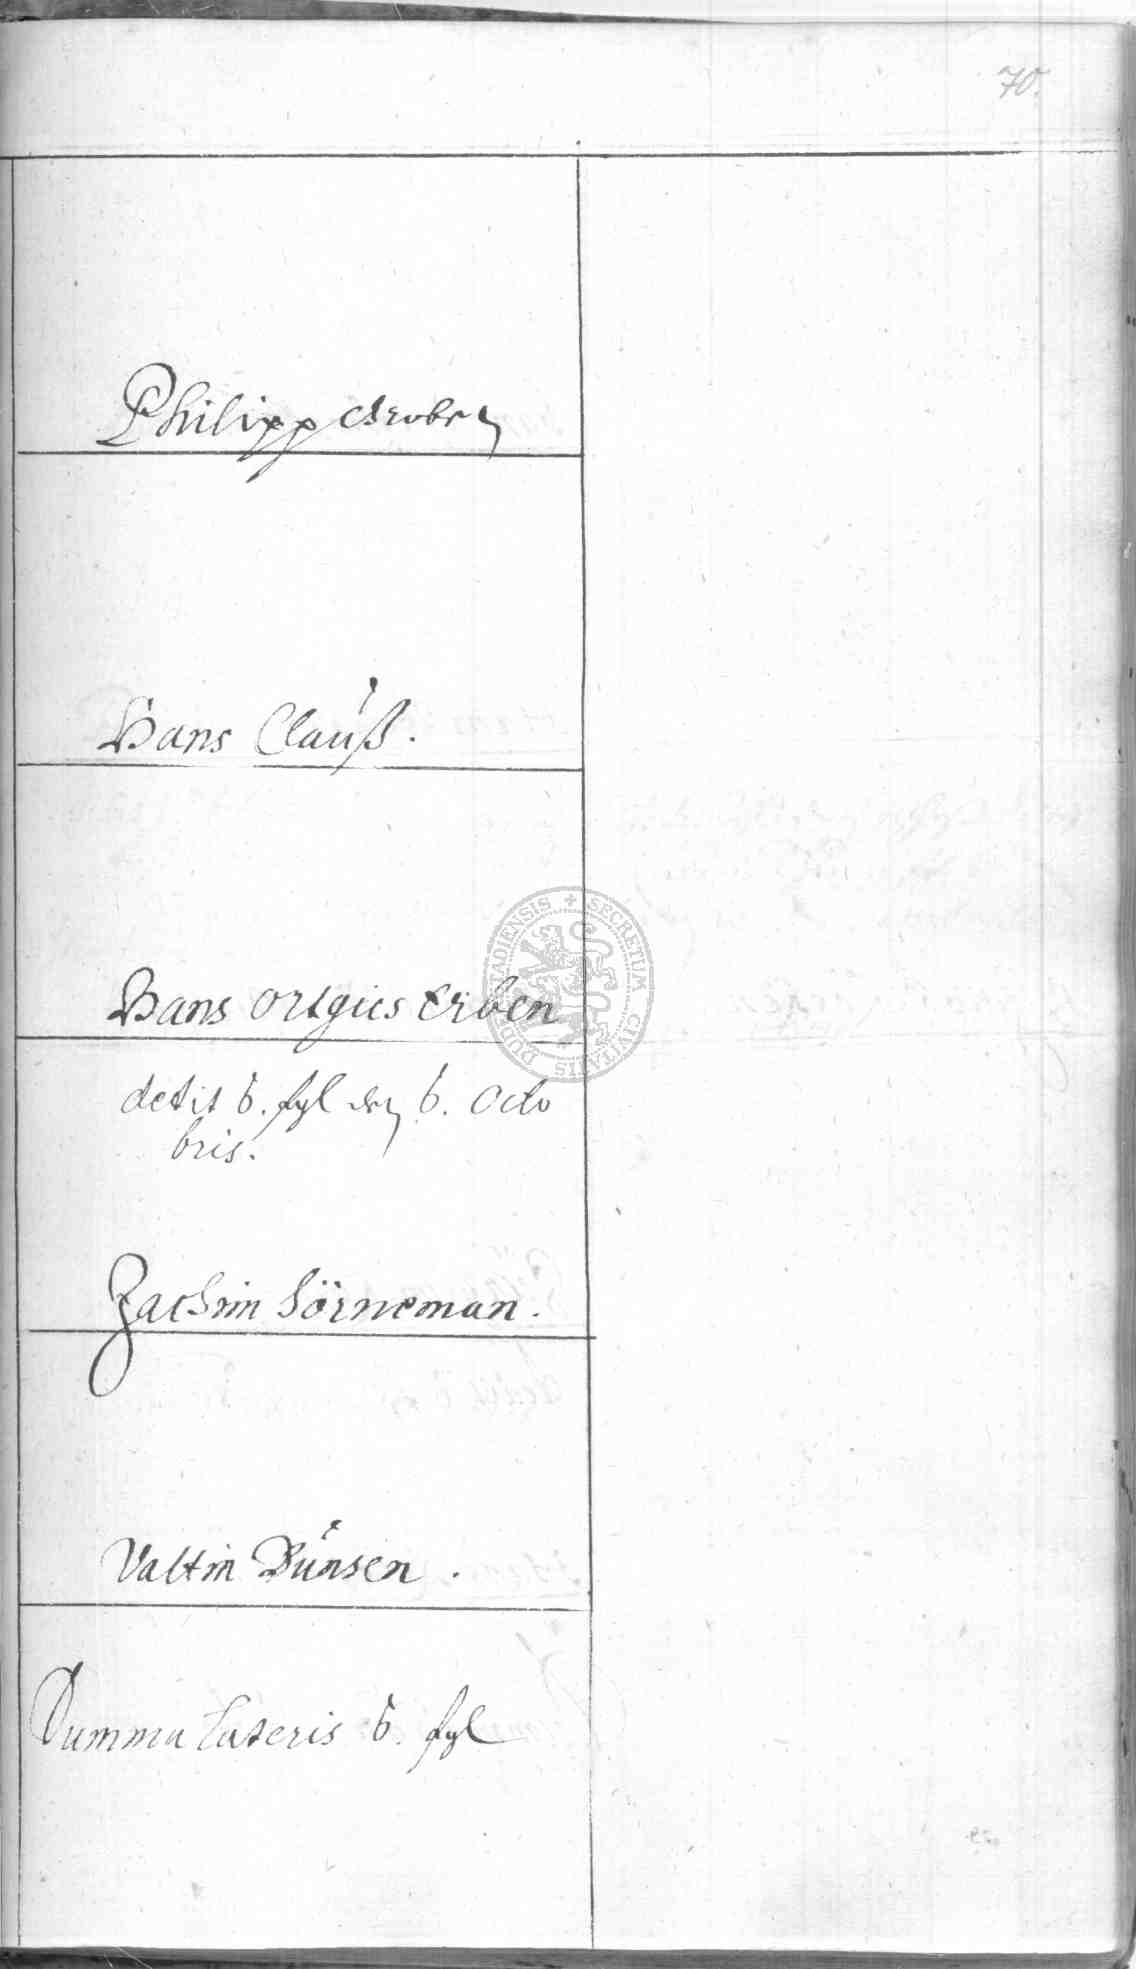 70.
Philipp Grobe
Hans Clauß.
Hans Ortgies Erben
dedit 6. ßl den 6. Octo
bris.
Jachim Hörneman.
Valtin Bünsen.
Summa Lateris 6. ßl
SECRETUM CIVITATIS DUDERSTADIENSIS